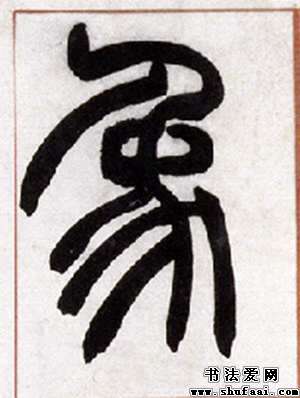 象
书法爱网
www.shufaai.com